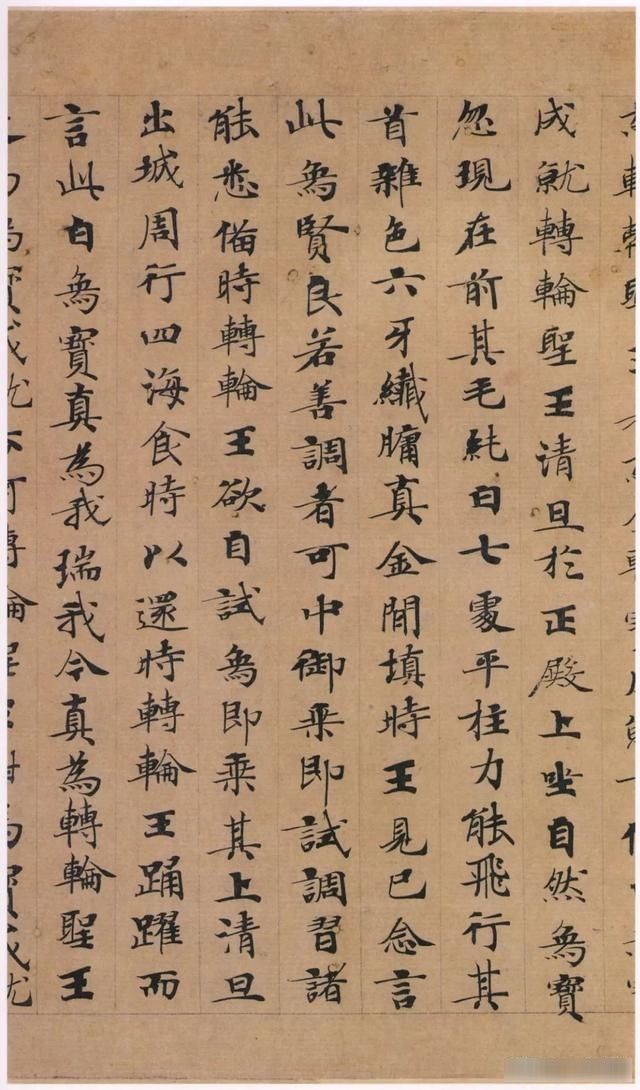 成就轉輪聖王清旦於正殿上坐自然象寶
忽現在前其毛純白七處平住力能飛行其
首雜色六牙纖𦟛真金間填時王見已念言
此象賢良若善調者可中御乘即試調習諸
能悉俻時轉輪王欲自試象即乘其上清旦
出城周行四海食時以還時轉輪王踊躍而
言此白象寶真為我瑞我今真為轉輪聖王